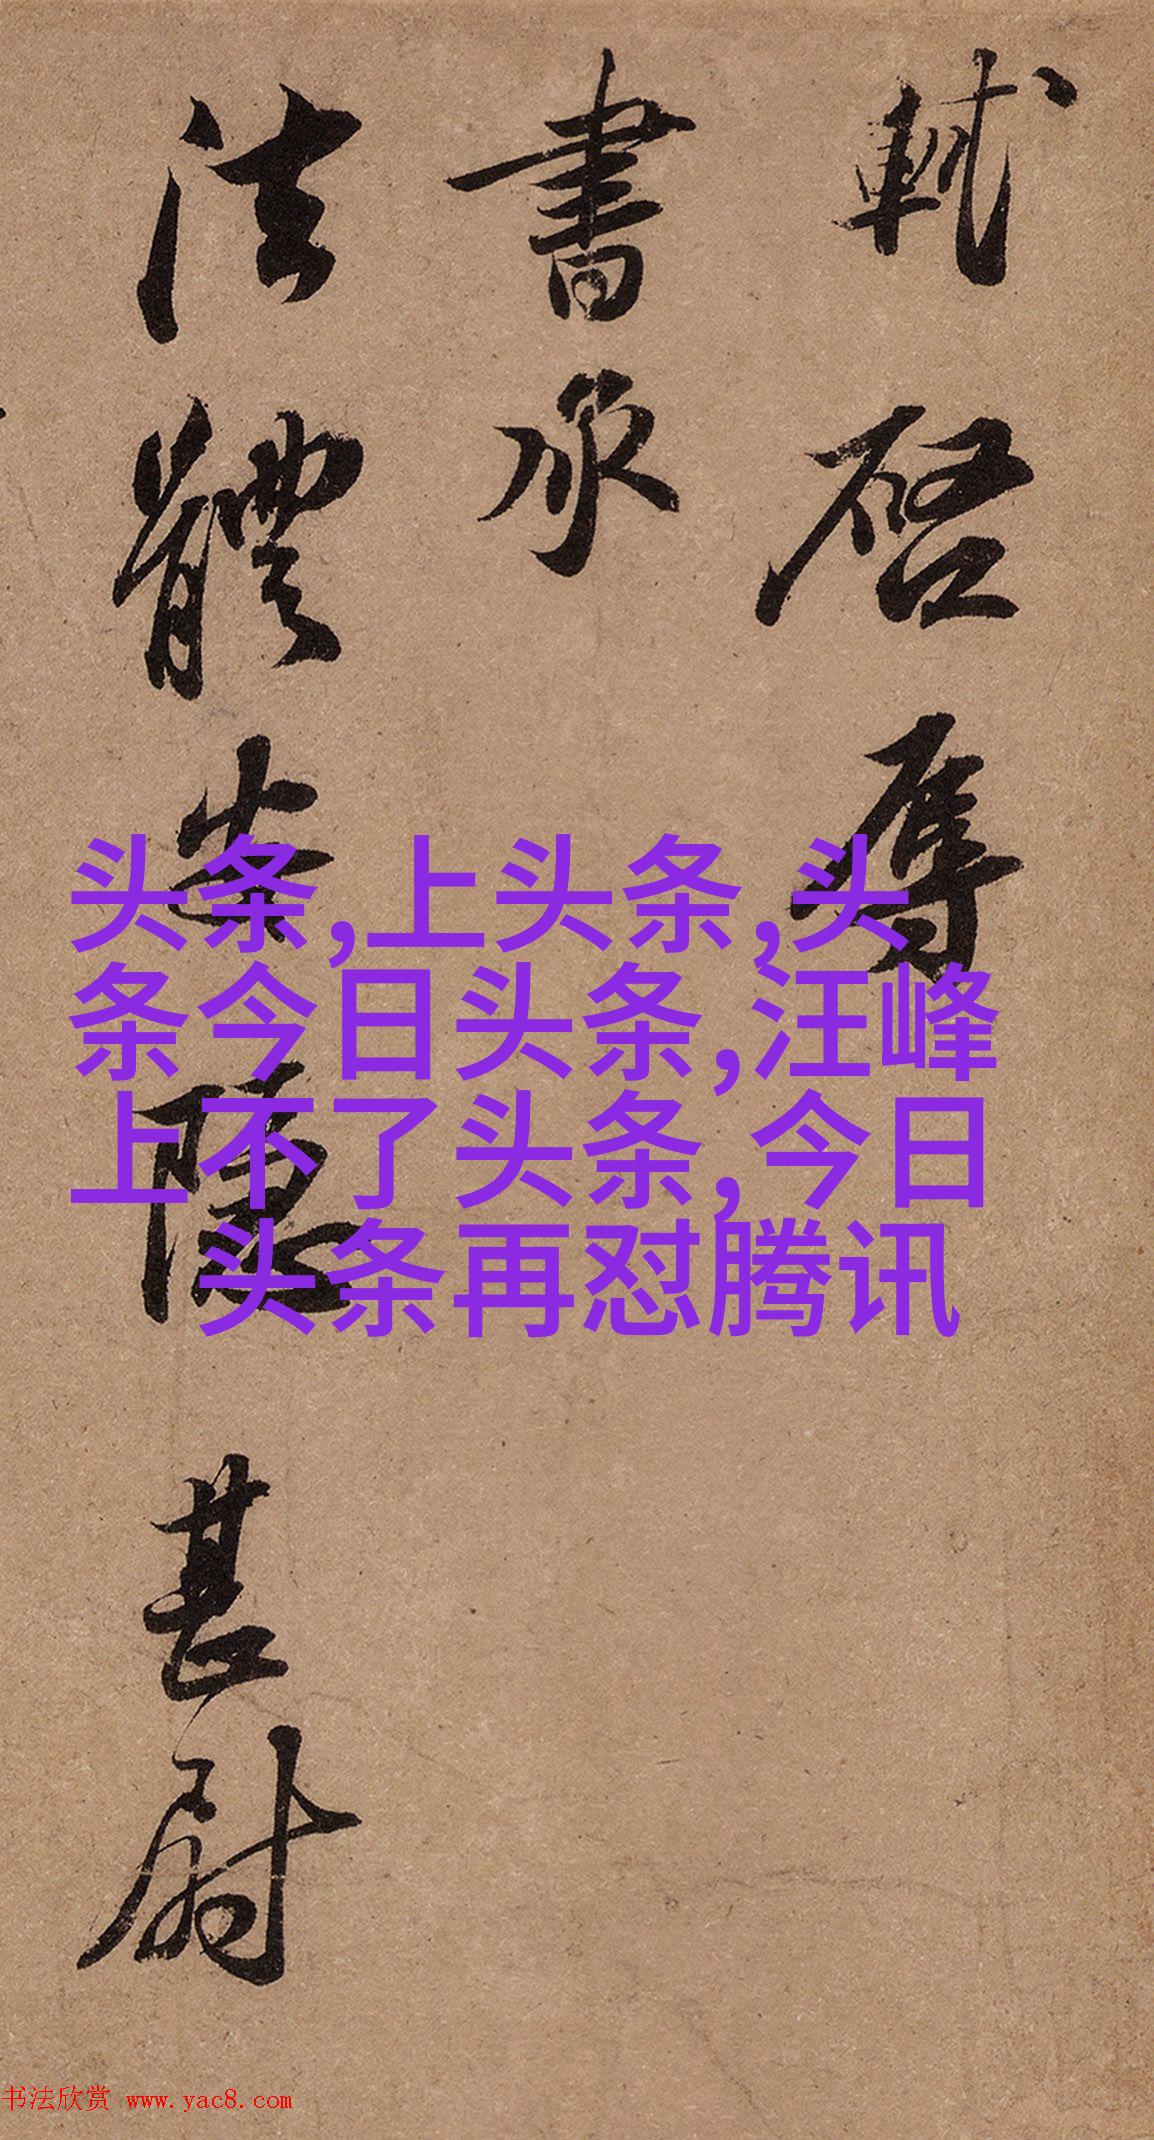 軾啓辱
書承
法體安隱甚慰
头条,上头条,头
条今日头条,汪峰
上不了头条,今日
头条再怼腾讯
书法欣赏 www.yac8.com